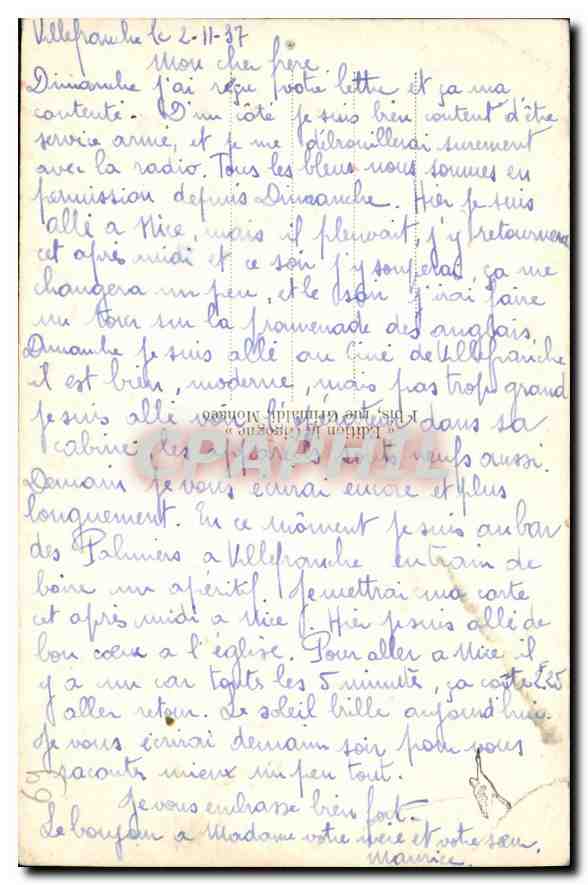 Villefranche le 2-11-37
Mon cher frère
Dimanche j'ai reçu votre lettre et ça ma
contenté. D'un côté je suis bien content d'être
service armé, et je me débrouillerai surement
avec la radio. Tous les bleus nous sommes en
permission depuis Dimanche. Hier je suis
allé a Nice, mais il pleuvait, j'y retournerai
cet après midi et ce soir j'y souperai, ça me
changera un peu, et le soir j'irai faire
un tour sur la promenade des anglais.
Dimanche je suis allé au Ciné de Villefranche
il est bien, moderne, mais pas trop grand
je suis allé voir l' dans sa
cabine, les appareils sont neufs aussi.
Demain je vous écrirai encore et plus
longuement. En ce môment je suis au bar
des Palmiers a Villefranche en train de
boire un apéritif. Je mettrai ma carte
cet après midi a Nice. Hier je suis allé de
bon cœur a l'église. Pour aller a Nice il
y a un car touts les 5 minute, ça coûte 2F25
aller retour. Le soleil brille aujourd'hui.
Je vous écrirai demain soir pour vous
racouter mieux un peu tout.
Je vous embrasse bien fort.
Le bonjour a Madame votre mère et votre sœur.
Maurice.
« Edition la Cigogne »
1 bis, rue Grimaldi, Monaco
CPAPHIL